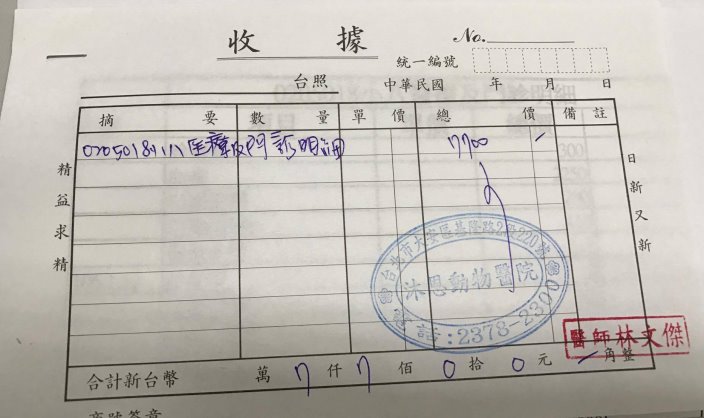 收據
No.
統一編號
台照
中華民國 年 月 日
摘要 數量 單價 總價 備註
0205018111 医療及門診明細 7700
精益求精
日新又新
台北市大安區基隆路2段220號
沐恩動物醫院
電話:2378-2300
醫師林文傑
合計新台幣 萬 7 仟 7 佰 0 拾 0 元 角整
商號簽章